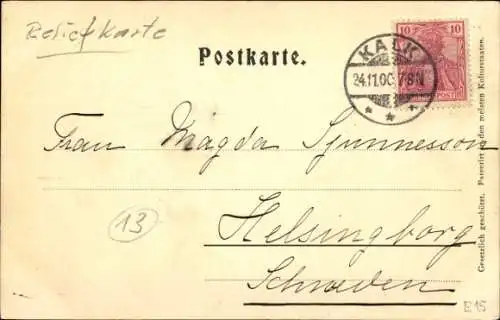 Reliefkarte
Postkarte.
10 10
KALK
24.11.00. 7-8 N
* * *
Frau Magda Sjunnesson
13
Helsingborg
Schweden
Gesetzlich geschützt. Patentirt in den meisten Kulturstaaten.
E 15